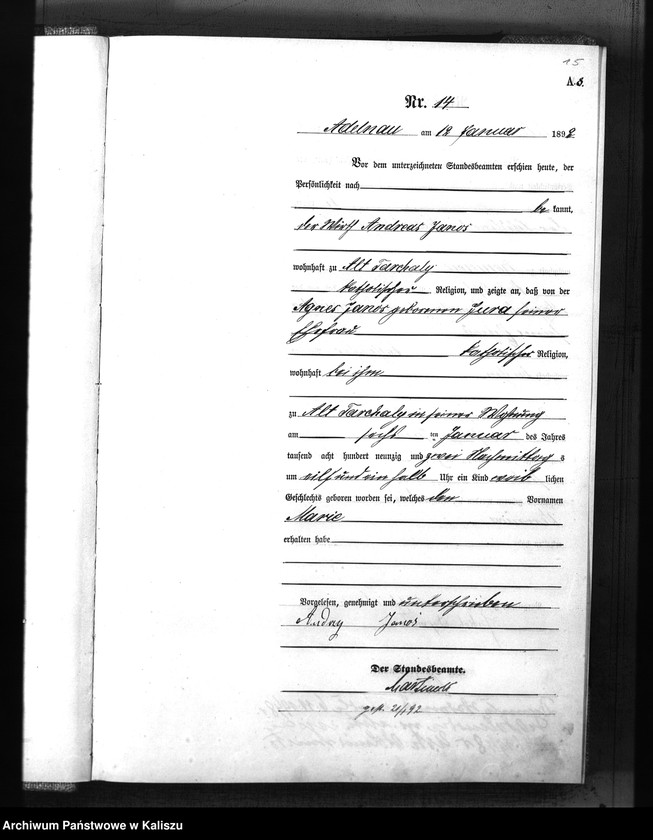 15
A.
Nr. 14
Adelnau am 12 Januar 1892
Vor dem unterzeichneten Standesbeamten erschien heute, der
Persönlichkeit nach
be kannt,
der Wirth Andreas Janos
wohnhaft zu Alt Tarchaly
katholischer Religion, und zeigte an, daß von der
Agnes Janos geborenen Jura seiner
Ehefrau
katholischer Religion,
wohnhaft bei ihm
zu Alt Tarchaly in seiner Wohnung
am sechs ten Januar des Jahres
tausend acht hundert neunzig und zwei Nachmittag s
um eilf und ein halb Uhr ein Kind weib lichen
Geschlechts geboren worden sei, welches den Vornamen
Marie
erhalten habe
Vorgelesen, genehmigt und unterschrieben
Andrzy Janoś
Der Standesbeamte.
Archiwum Państwowe w Kaliszu